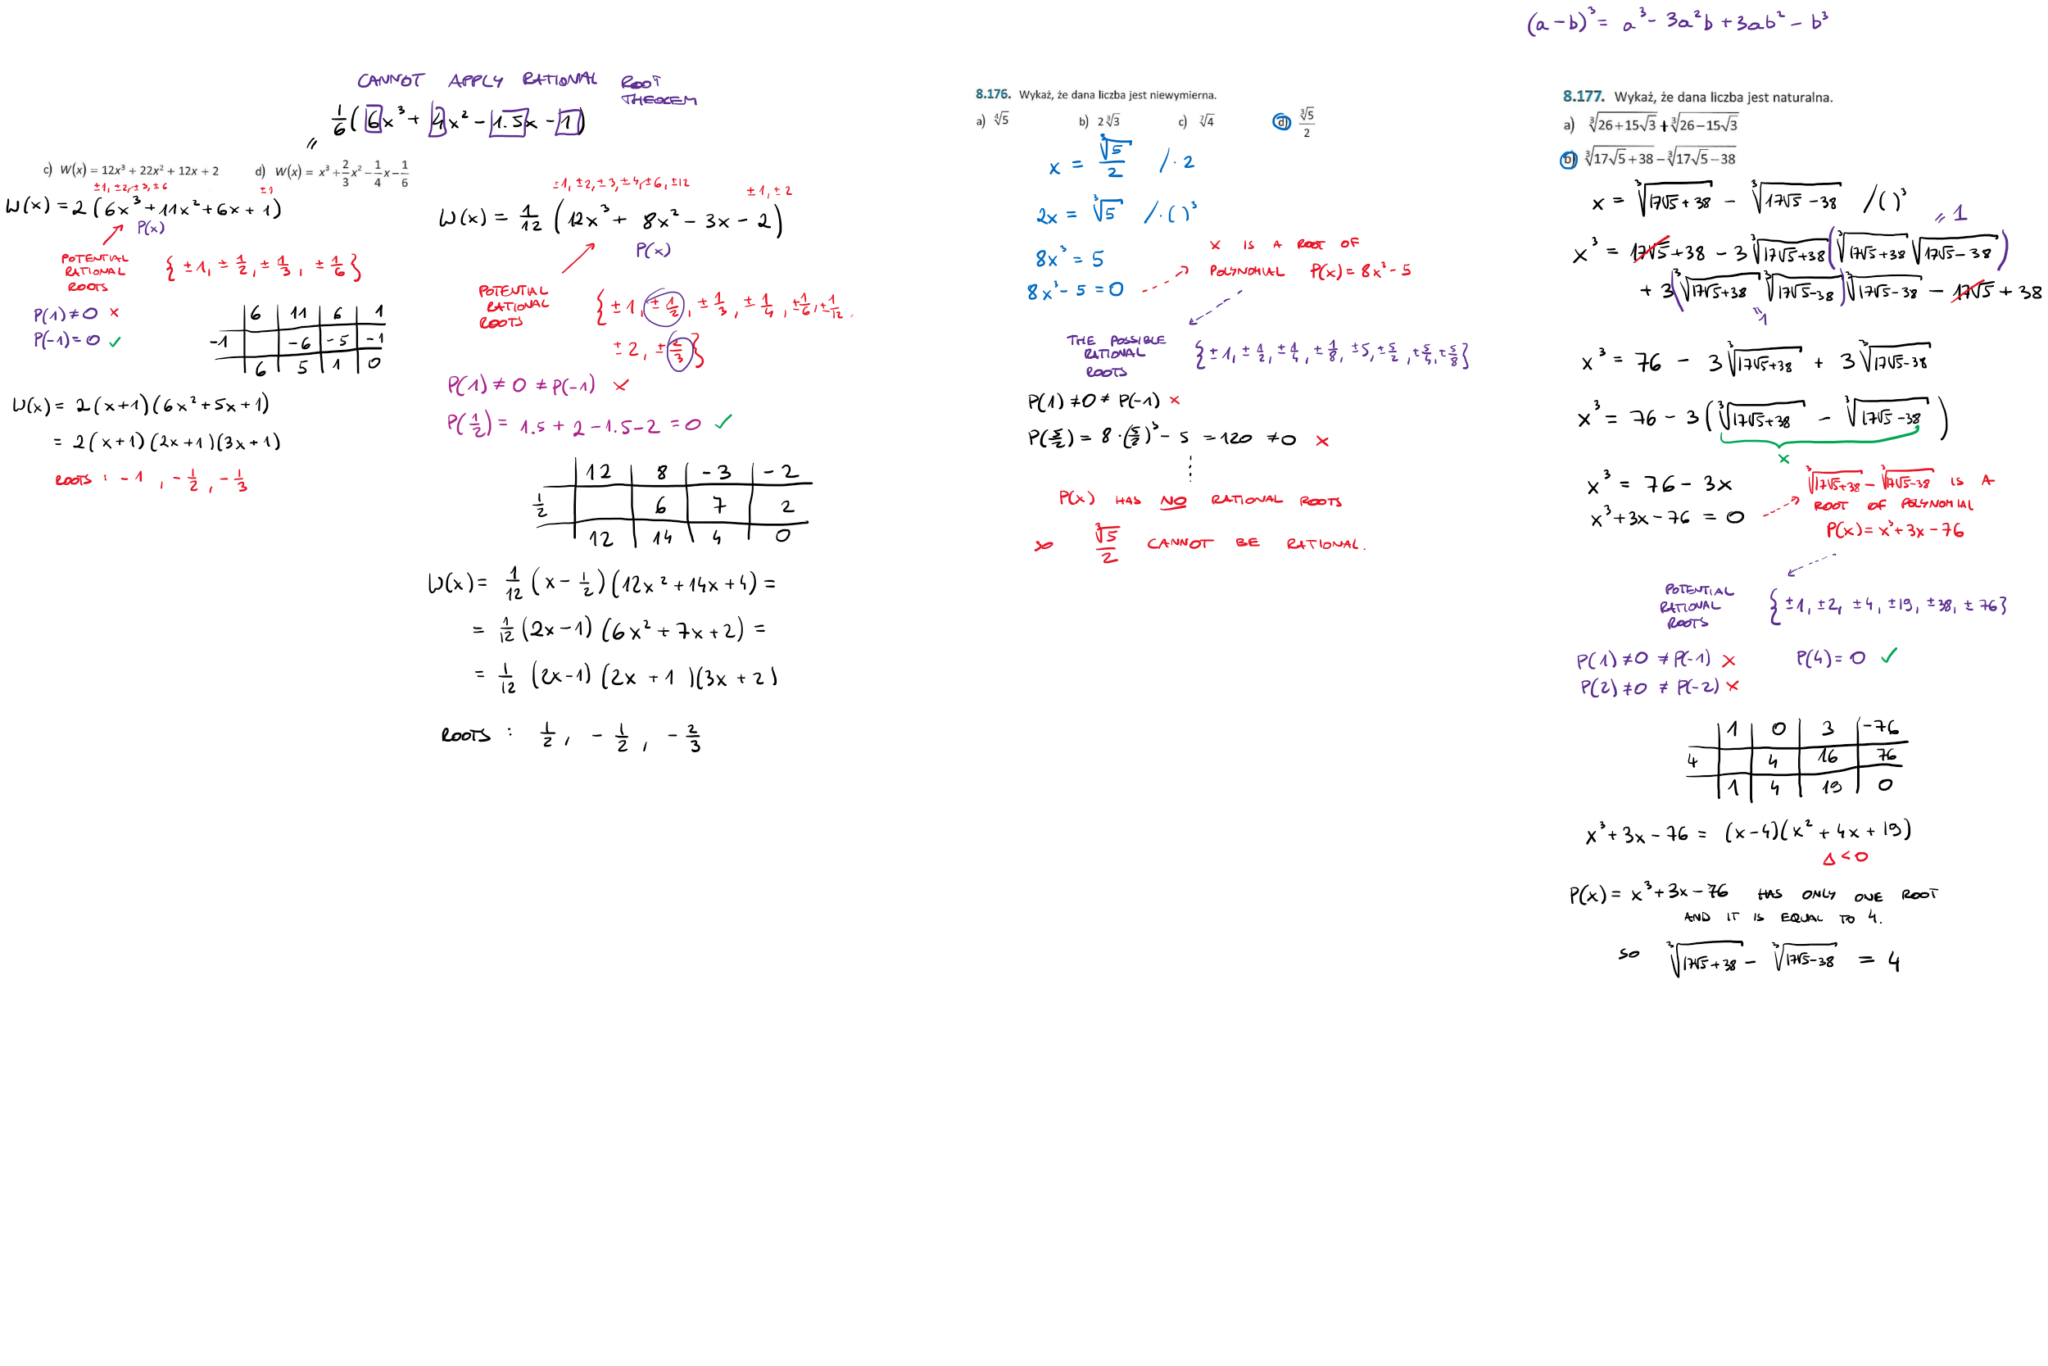 CANNOT APPLY RATIONAL ROOT THEOREM
= 1/6 (6x³ + 4x² - 1.5x - 1)
c) W(x) = 12x³ + 22x² + 12x + 2
d) W(x) = x³ + 2/3 x² - 1/4 x - 1/6
±1, ±2, ±3, ±6
±1
W(x) = 2 (6x³ + 11x² + 6x + 1)
P(x)
POTENTIAL RATIONAL ROOTS
{±1, ±1/2, ±1/3, ±1/6}
P(1) ≠ 0 ×
P(-1) = 0 ✓
6 | 11 | 6 | 1
-1 | | -6 | -5 | -1
6 | 5 | 1 | 0
W(x) = 2 (x+1)(6x² + 5x + 1)
= 2 (x+1)(2x+1)(3x+1)
ROOTS : -1, -1/2, -1/3
±1, ±2, ±3, ±4, ±6, ±12
±1, ±2
W(x) = 1/12 (12x³ + 8x² - 3x - 2)
P(x)
POTENTIAL RATIONAL ROOTS
{±1, ±1/2, ±1/3, ±1/4, ±1/6, ±1/12,
±2, ±2/3}
P(1) ≠ 0 ≠ P(-1) ×
P(1/2) = 1.5 + 2 - 1.5 - 2 = 0 ✓
12 | 8 | -3 | -2
1/2 | | 6 | 7 | 2
12 | 14 | 4 | 0
W(x) = 1/12 (x - 1/2)(12x² + 14x + 4) =
= 1/12 (2x-1)(6x² + 7x + 2) =
= 1/12 (2x-1)(2x+1)(3x+2)
ROOTS : 1/2, -1/2, -2/3
8.176. Wykaż, że dana liczba jest niewymierna.
a) ∜5 b) 2∛3 c) ∛4 d) ∛5/2
x = ∛5/2 /·2
2x = ∛5 /·( )³
8x³ = 5
8x³ - 5 = 0
x IS A ROOT OF
POLYNOMIAL P(x) = 8x³ - 5
THE POSSIBLE RATIONAL ROOTS
{±1, ±1/2, ±1/4, ±1/8, ±5, ±5/2, ±5/4, ±5/8}
P(1) ≠ 0 ≠ P(-1) ×
P(5/2) = 8·(5/2)³ - 5 = 120 ≠ 0 ×
P(x) HAS NO RATIONAL ROOTS
SO ∛5/2 CANNOT BE RATIONAL.
(a-b)³ = a³ - 3a²b + 3ab² - b³
8.177. Wykaż, że dana liczba jest naturalna.
a) ∛(26+15√3) + ∛(26-15√3)
b) ∛(17√5+38) - ∛(17√5-38)
x = ∛(17√5+38) - ∛(17√5-38) /( )³
= 1
x³ = 17√5 + 38 - 3∛(17√5+38) (∛(17√5+38) ∛(17√5-38))
+ 3(∛(17√5+38) ∛(17√5-38)) ∛(17√5-38) - 17√5 + 38
= 1
x³ = 76 - 3∛(17√5+38) + 3∛(17√5-38)
x³ = 76 - 3(∛(17√5+38) - ∛(17√5-38))
x
x³ = 76 - 3x
x³ + 3x - 76 = 0
∛(17√5+38) - ∛(17√5-38) IS A
ROOT OF POLYNOMIAL
P(x) = x³ + 3x - 76
POTENTIAL RATIONAL ROOTS
{±1, ±2, ±4, ±19, ±38, ±76}
P(1) ≠ 0 ≠ P(-1) × P(4) = 0 ✓
P(2) ≠ 0 ≠ P(-2) ×
1 | 0 | 3 | -76
4 | | 4 | 16 | 76
1 | 4 | 19 | 0
x³ + 3x - 76 = (x-4)(x² + 4x + 19)
Δ<0
P(x) = x³ + 3x - 76 HAS ONLY ONE ROOT
AND IT IS EQUAL TO 4.
SO ∛(17√5+38) - ∛(17√5-38) = 4